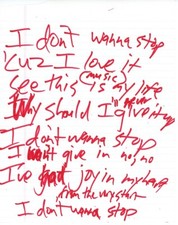 I don't wanna stop
Cuz I love it
see this music is my life
Why should I never give it up
I don't wanna stop
I won't give in no, no
I've got joy in my heart
from the very start
I don't wanna stop